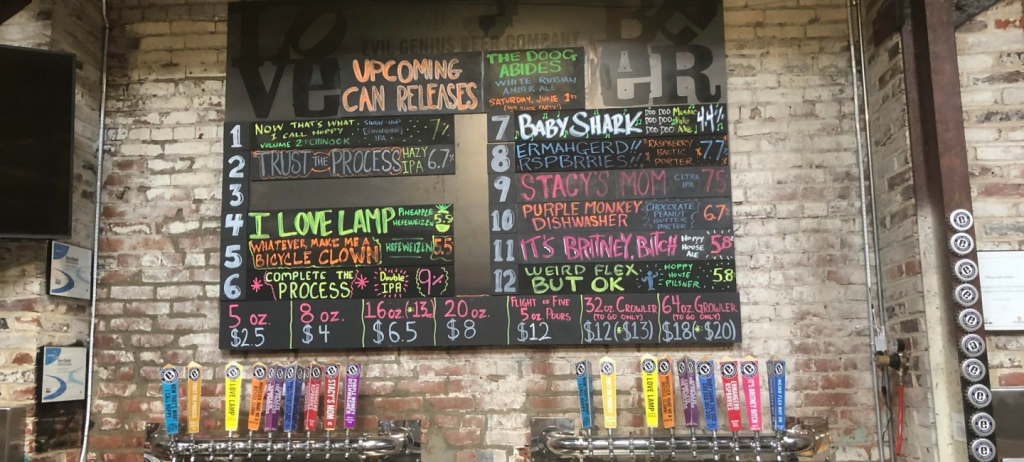 LOVE
BEER
EVIL GENIUS BEER COMPANY
UPCOMING
CAN RELEASES
THE DOOG
ABIDES
WHITE RUSSIAN
AMBER ALE
SATURDAY, JUNE 1ST
1 NOW THAT'S WHAT
I CALL HOPPY
VOLUME 2: CHINOOK
IPA
7%
2 TRUST THE PROCESS HAZY
IPA 6.7%
3
4 I LOVE LAMP PINEAPPLE
HEFEWEIZEN 5.5
5 WHATEVER, MAKE ME A
BICYCLE CLOWN HEFEWEIZEN 5.5
6 COMPLETE THE
PROCESS Double
IPA 9%
7 BABY SHARK DOO DOO
DOO DOO
DOO DOO
Ale 4.4%
8 ERMAHGERD!!
RSPBRRIES!! RASPBERRY
BALTIC
PORTER 7.7%
9 STACY'S MOM CITRA
IPA 7.5
10 PURPLE MONKEY
DISHWASHER CHOCOLATE
PEANUT
BUTTER
PORTER 6.7
11 IT'S BRITNEY, BITCH HOPPY
HOUSE
ALE 5.8
12 WEIRD FLEX
BUT OK HOPPY
HOUSE
PILSNER 5.8
5 oz.
$2.5
8 oz.
$4
16 oz. (*13%)
$6.5
20 oz.
$8
FLIGHT OF FIVE
5 oz. POURS
$12
32oz CROWLER
(TO GO ONLY)
$12 (*$13)
64oz GROWLER
(TO GO ONLY)
$18 (*$20)
I LOVE LAMP
STACY'S MOM
PURPLE MONKEY
I LOVE LAMP
ERMAHGERD
IT'S BRITNEY BITCH